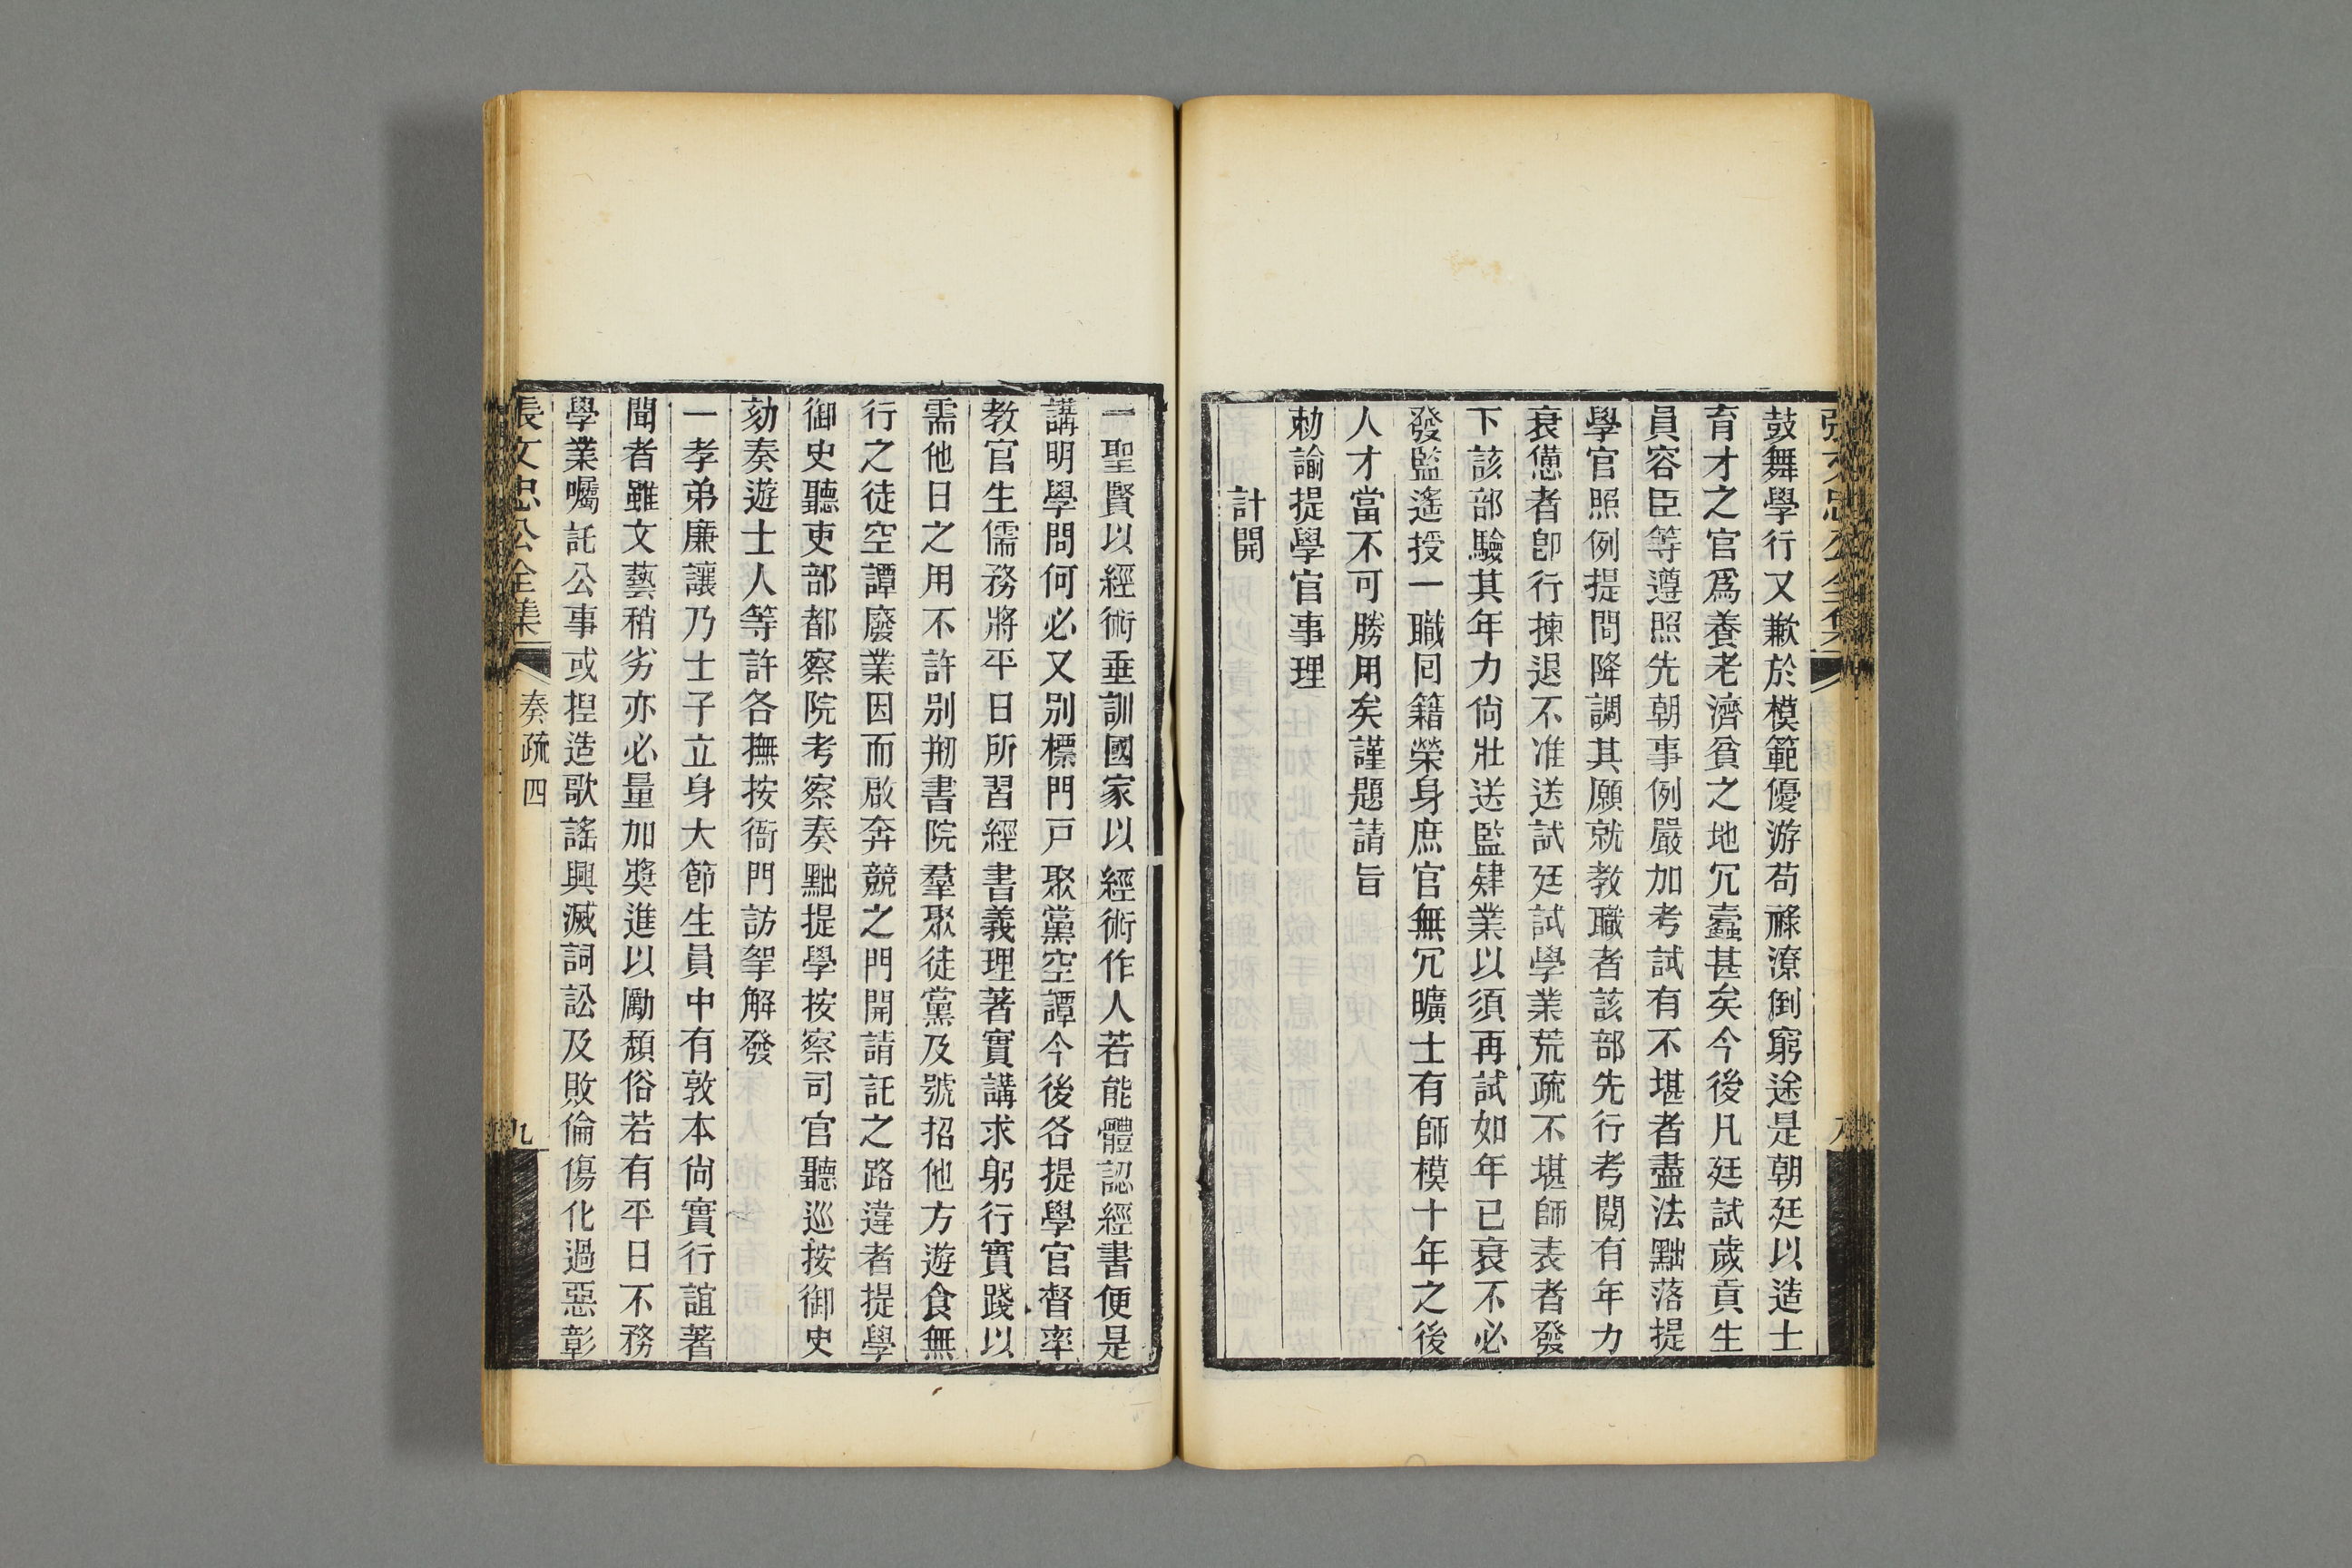 張文忠公全集
鼓舞學行又歉於模範優游苟祿潦倒窮途是朝廷以造士
育才之官爲養老濟貧之地冗蠧甚矣今後凡廷試歲貢生
員容臣等遵照先朝事例嚴加考試有不堪者盡法黜落提
學官照例提問降調其願就教職者該部先行考閱有年力
衰憊者卽行揀退不准送試廷試學業荒疏不堪師表者發
下該部驗其年力尙壯送監肄業以須再試如年已衰不必
發監遙授一職囘籍榮身庶官無冗曠士有師模十年之後
人才當不可勝用矣謹題請旨
勅諭提學官事理
計開
一聖賢以經術垂訓國家以經術作人若能體認經書便是
講明學問何必又別標門戸聚黨空譚今後各提學官督率
教官生儒務將平日所習經書義理著實講求躬行實踐以
需他日之用不許別刱書院羣聚徒黨及號招他方遊食無
行之徒空譚廢業因而啟奔競之門開請託之路違者提學
御史聽吏部都察院考察奏黜提學按察司官聽巡按御史
劾奏遊士人等許各撫按衙門訪拏解發
一孝弟廉讓乃士子立身大節生員中有敦本尙實行誼著
聞者雖文藝稍劣亦必量加奬進以勵頹俗若有平日不務
學業囑託公事或揑造歌謠興滅詞訟及敗倫傷化過惡彰
張文忠公全集 奏疏四 九